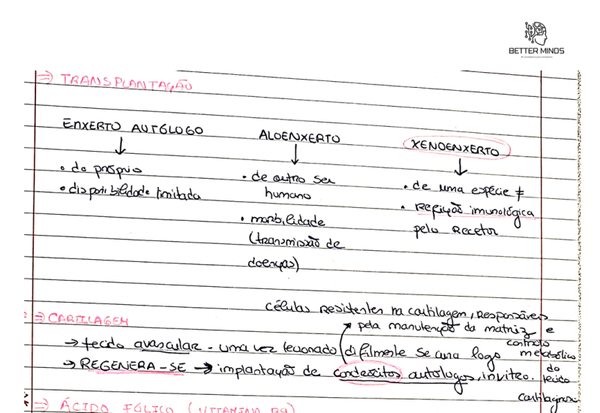 BETTER MINDS
⇒ TRANSPLANTAÇÃO
ENXERTO AUTÓLOGO
ALOENXERTO
XENOENXERTO
• do próprio
• disponibilidade limitada
• de outro ser
humano
• morbilidade
(transmissão de
doenças)
• de uma espécie ≠
• Rejeição imunológica
pelo Recetor
células residentes na cartilagem, responsáveis
pela manutenção da matriz e
controlo
metabólico
do
tecido
cartilagíneo
⇒ CARTILAGEM
→ tecido avascular - uma vez lesionado dificilmente se cura logo
→ REGENERA-SE → implantação de condrócitos autólogos, in vitro.
⇒ ÁCIDO FÓLICO (VITAMINA B9)